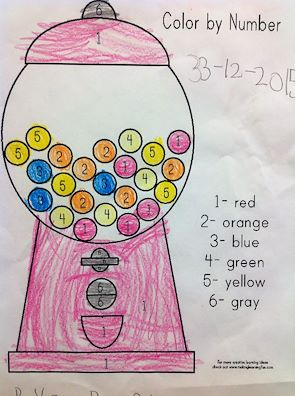 6
Color by Number
1
33-12-2015
5 2 4 1
5 2 2 5
3 1 4 2
5 3
3 2 1 4 5
4 2 4 1
1 1
1- red
2- orange
3- blue
4- green
5- yellow
6- gray
6
6
6
6
1
1
1
For more creative learning ideas
check out www.makinglearningfun.com